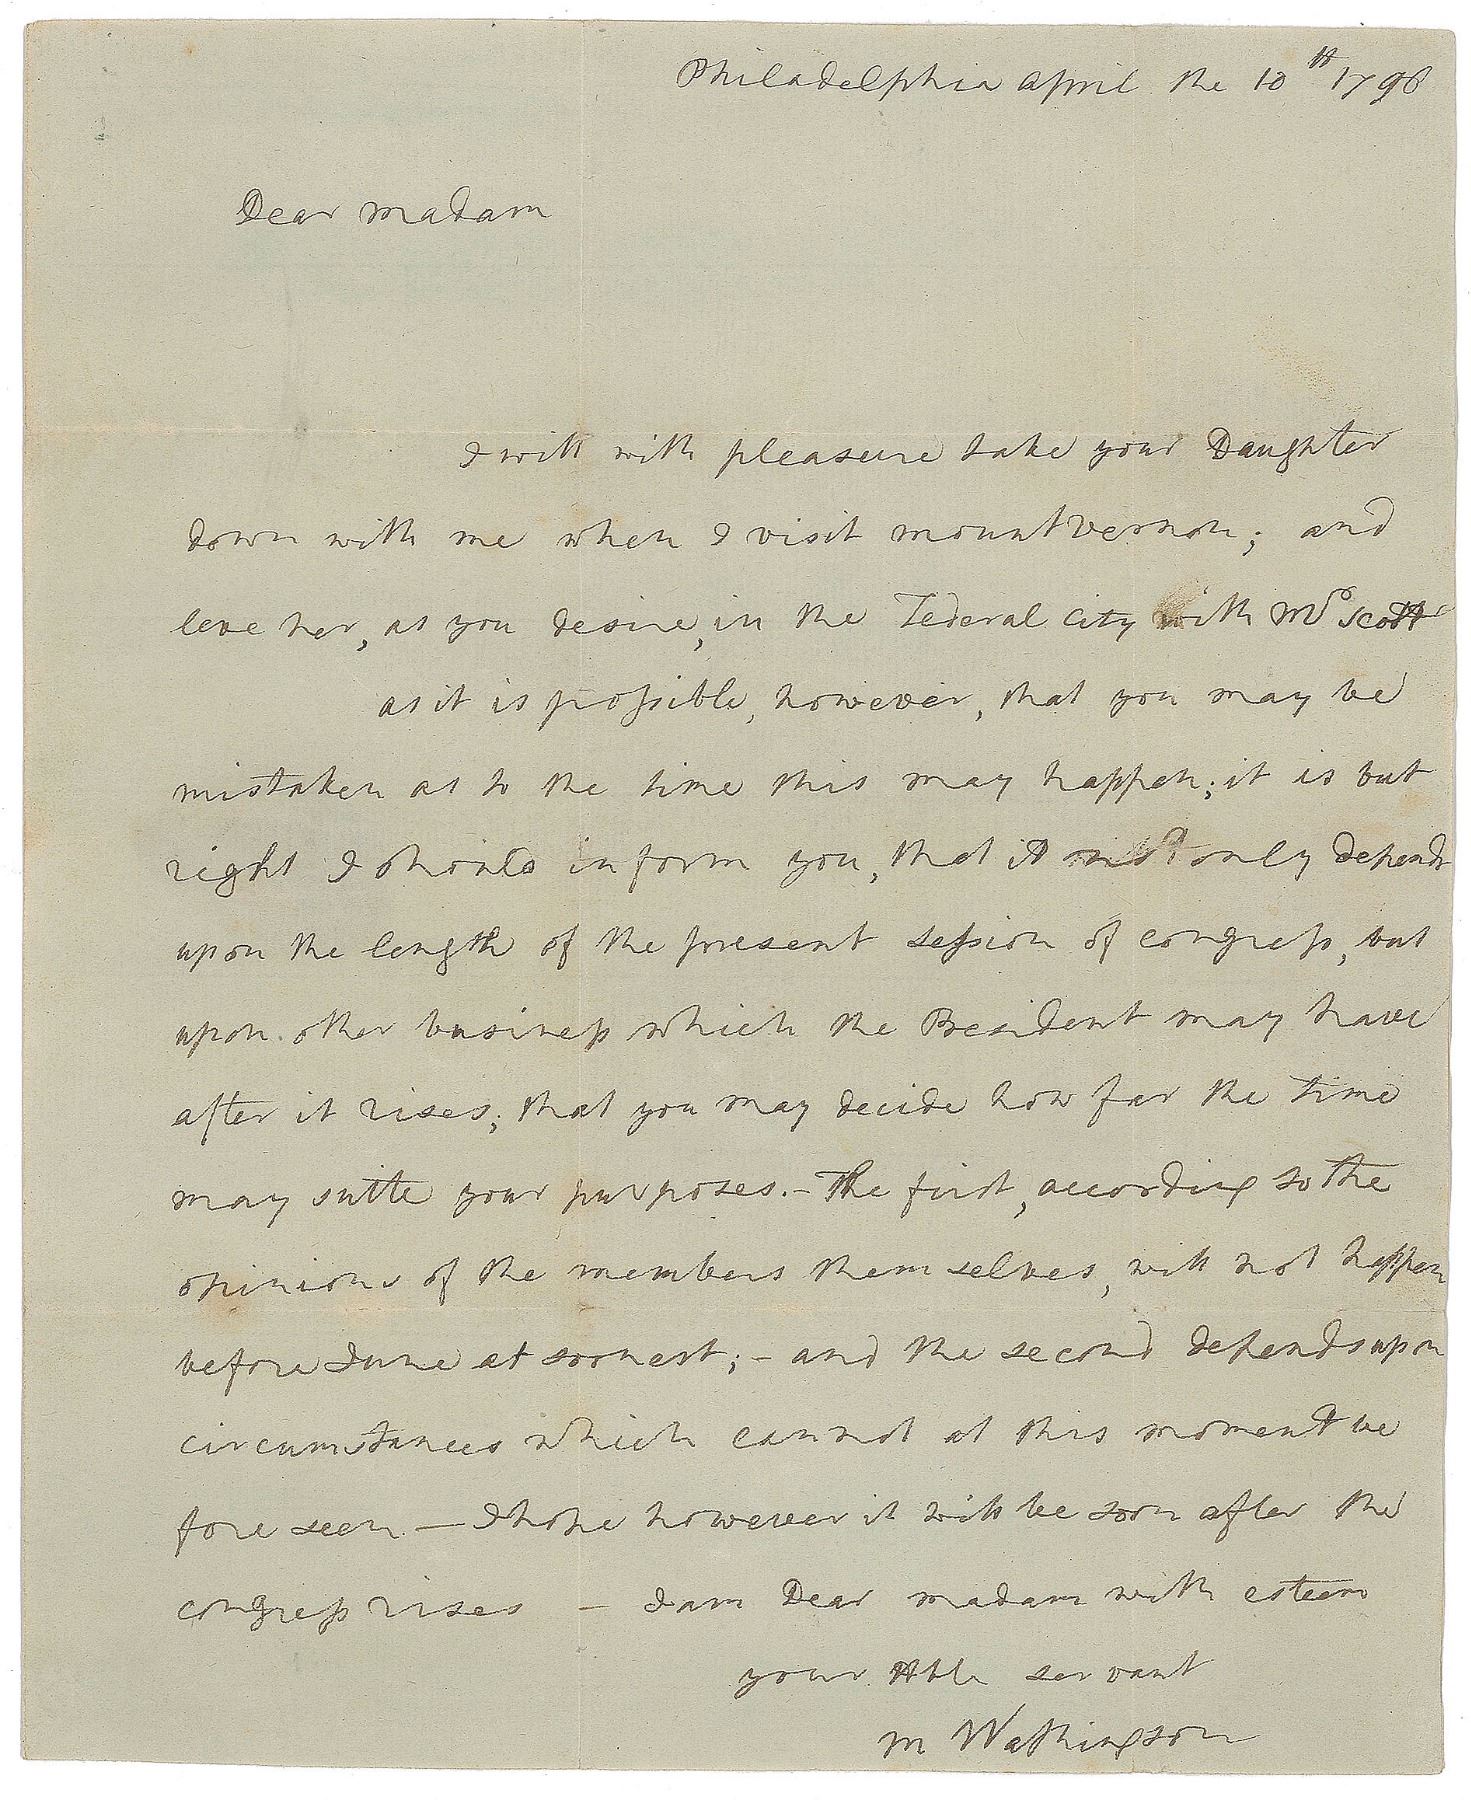 Philadelphia April the 10th 1796
Dear madam
I will with pleasure take your Daughter
down with me when I visit mountvernon; and
leve her, as you desire, in the Federal City with Mrs Scott
as it is possible, however, that you may be
mistaken as to the time this may happen; it is but
right I should inform you, that it not only depends
upon the length of the present session of congress, but
upon other business which the President may have
after it rises; that you may decide how far the time
may sutte your purposes. – The first, according to the
opinions of the members them selves, will not happen
before June at soonest; – and the second depends upon
circumstances which cannot at this moment be
fore seen – I hope however it will be soon after the
congress rises – I am Dear madam with esteem
your Hble servant
M Washington